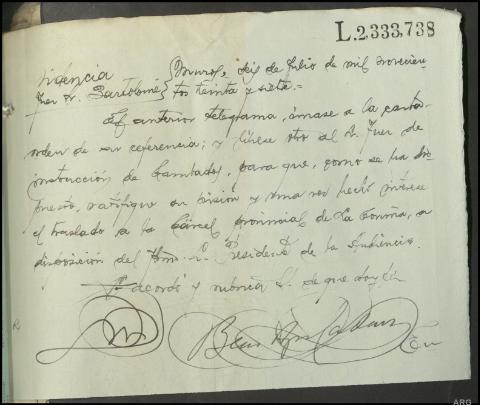 L.2.333.738
Muros, seis de Julio de mil novecien-
Juez Sr. Bartolomé tos treinta y siete.=
El anterior telegrama, únase a la carta-
orden de su referencia; y líbrese otro al Sr. Juez de
instrucción de, para que, como se ha dis-
puesto, ratifique su prisión y una vez hecho interese
el traslado a la Cárcel provincial de La Coruña, a
disposición del Iltmo. Sr. Presidente de la Audiencia.
Lo acordó y rubrica S.S. de que doy fe
ARG